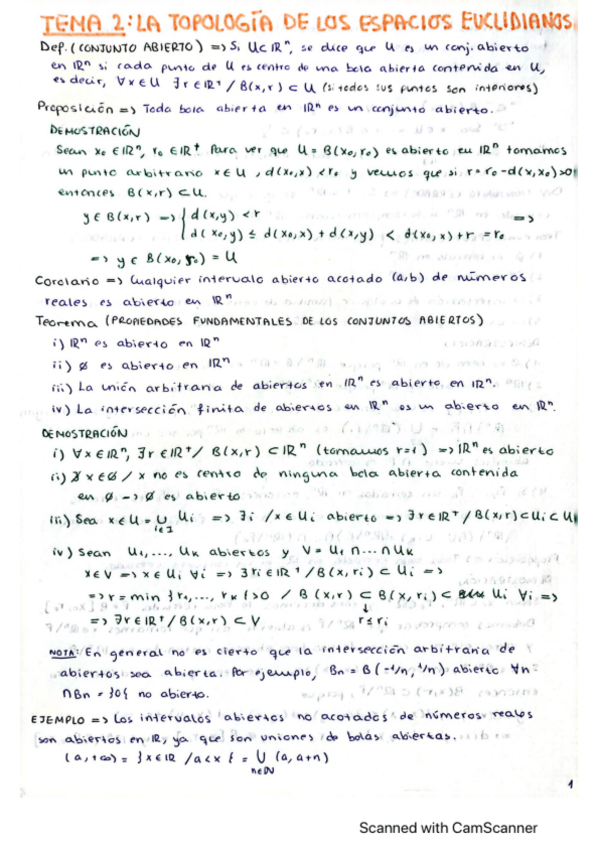 TEMA 2: LA TOPOLOGÍA DE LOS ESPACIOS EUCLIDIANOS
Dep. (CONJUNTO ABIERTO) => Si U⊂ℝⁿ, se duce que U es un conj. abierto
en ℝⁿ si cada punto de U es centro de una bola abierta contenida en U,
es decir, ∀x∈U ∃r∈ℝ⁺ / B(x,r) ⊂ U (si todos sus puntos son interiores)
Proposición => Toda bola abierta en ℝⁿ es un conjunto abierto.
DEMOSTRACIÓN
Sean x₀∈ℝⁿ, r₀∈ℝ⁺ Para ver que U = B(x₀,r₀) es abierto en ℝⁿ tomamos
un punto arbitrario x∈U, d(x₀,x) < r₀ y vemos que si r = r₀-d(x,x₀)>0
entonces B(x,r) ⊂ U.
y∈B(x,r) => { d(x,y) < r
d(x₀,y) ≤ d(x₀,x) + d(x,y) < d(x₀,x) + r = r₀ =>
=> y∈B(x₀,r₀) = U
Corolario => Cualquier intervalo abierto acotado (a,b) de números
reales es abierto en ℝⁿ
Teorema (PROPIEDADES FUNDAMENTALES DE LOS CONJUNTOS ABIERTOS)
i) ℝⁿ es abierto en ℝⁿ
ii) ∅ es abierto en ℝⁿ
iii) La unión arbitraria de abiertos en ℝⁿ es abierto en ℝⁿ.
iv) La intersección finita de abiertos en ℝⁿ es un abierto en ℝⁿ.
DEMOSTRACIÓN
i) ∀x∈ℝⁿ, ∃r∈ℝ⁺/ B(x,r) ⊂ℝⁿ (tomamos r=1) => ℝⁿ es abierto
ii) ∄ x∈∅ / x no es centro de ninguna bola abierta contenida
en ∅ -> ∅ es abierto
iii) Sea x∈U = ∪ Ui => ∃i /x∈Ui abierto => ∃r∈ℝ⁺/B(x,r)⊂Ui⊂U
i∈I
iv) Sean U₁,..., Uk abiertos y V = U₁ ∩...∩ Uk
x∈V => x∈Ui ∀i => ∃ri∈ℝ⁺ /B(x,ri) ⊂ Ui =>
=> r = min {r₁,..., rk}>0 / B(x,r) ⊂ B(x,ri) ⊂ Ui ∀i =>
=> ∃r∈ℝ⁺/B(x,r) ⊂ V r≤ri
NOTA: En general no es cierto que la intersección arbitraria de
abiertos sea abierta. Por ejemplo, Bn = B(-1/n, 1/n) abierto ∀n
∩Bn = {0} no abierto.
EJEMPLO => Los intervalos abiertos no acotados de números reales
son abiertos en ℝ, ya que son uniones de bolas abiertas.
(a,+∞) = {x∈ℝ /a<x} = ∪ (a, a+n)
n∈ℕ
1
Scanned with CamScanner